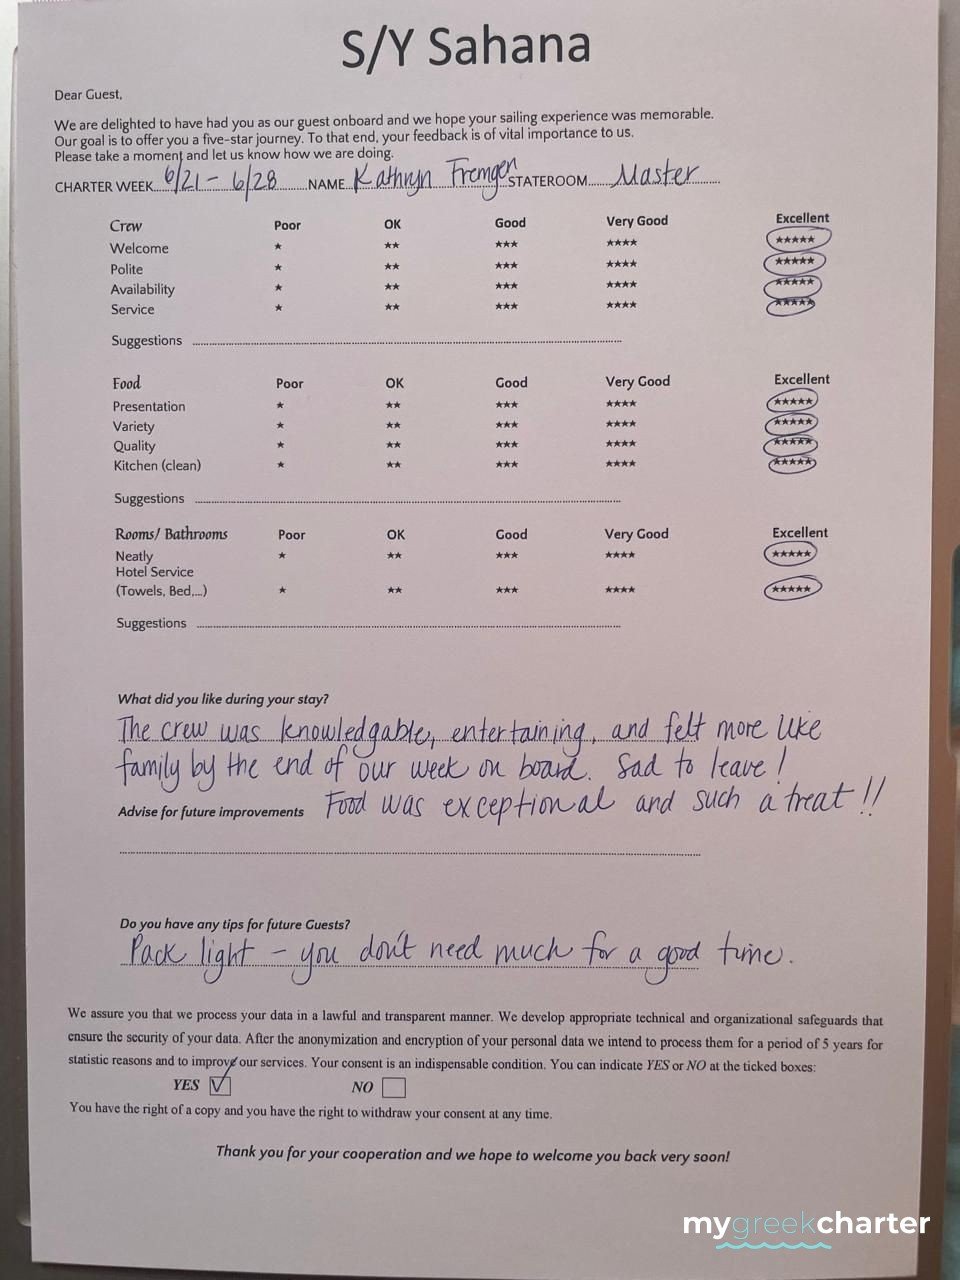 S/Y Sahana
Dear Guest,
We are delighted to have had you as our guest onboard and we hope your sailing experience was memorable.
Our goal is to offer you a five-star journey. To that end, your feedback is of vital importance to us.
Please take a moment and let us know how we are doing.
CHARTER WEEK 6/21 - 6/28 NAME Kathryn Fremgen STATEROOM Master
Crew Poor OK Good Very Good Excellent
Welcome ★ ★★ ★★★ ★★★★ ★★★★★
Polite ★ ★★ ★★★ ★★★★ ★★★★★
Availability ★ ★★ ★★★ ★★★★ ★★★★★
Service ★ ★★ ★★★ ★★★★ ★★★★★
Suggestions
Food Poor OK Good Very Good Excellent
Presentation ★ ★★ ★★★ ★★★★ ★★★★★
Variety ★ ★★ ★★★ ★★★★ ★★★★★
Quality ★ ★★ ★★★ ★★★★ ★★★★★
Kitchen (clean) ★ ★★ ★★★ ★★★★ ★★★★★
Suggestions
Rooms/ Bathrooms Poor OK Good Very Good Excellent
Neatly ★ ★★ ★★★ ★★★★ ★★★★★
Hotel Service
(Towels, Bed,...) ★ ★★ ★★★ ★★★★ ★★★★★
Suggestions
What did you like during your stay?
The crew was knowledgable, entertaining, and felt more like
family by the end of our week on board. Sad to leave!
Advise for future improvements Food was exceptional and such a treat!!
Do you have any tips for future Guests?
Pack light - you don't need much for a good time.
We assure you that we process your data in a lawful and transparent manner. We develop appropriate technical and organizational safeguards that
ensure the security of your data. After the anonymization and encryption of your personal data we intend to process them for a period of 5 years for
statistic reasons and to improve our services. Your consent is an indispensable condition. You can indicate YES or NO at the ticked boxes:
YES ☑ NO ☐
You have the right of a copy and you have the right to withdraw your consent at any time.
Thank you for your cooperation and we hope to welcome you back very soon!
mygreekcharter